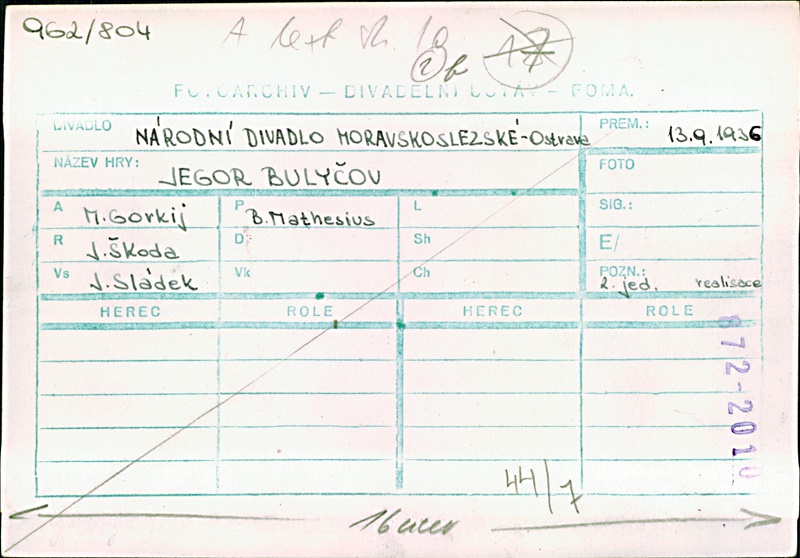 962/804
A text
FOTOARCHIV — DIVADELNÍ ÚSTAV — FOMA.
DIVADLO NÁRODNÍ DIVADLO MORAVSKOSLEZSKÉ-Ostrava
PREM.: 13.9.1936
NÁZEV HRY: JEGOR BULYČOV
FOTO
A M. Gorkij
P B. Mathesius
L
SIG.:
R J. Škoda
D
Sh
E/
Vs J. Sládek
Vk
Ch
POZN.:
2. jed. realisace
HEREC ROLE HEREC ROLE
672-2010
44/7